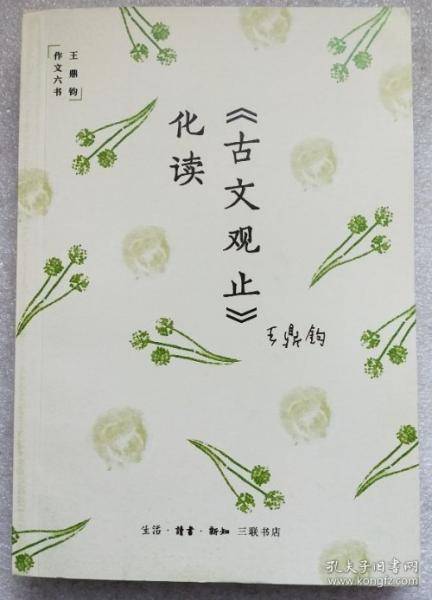 王鼎钧
作文六书
《古文观止》
化读
王鼎钧
生活·讀書·新知 三联书店
孔夫子旧书网
www.kongfz.com